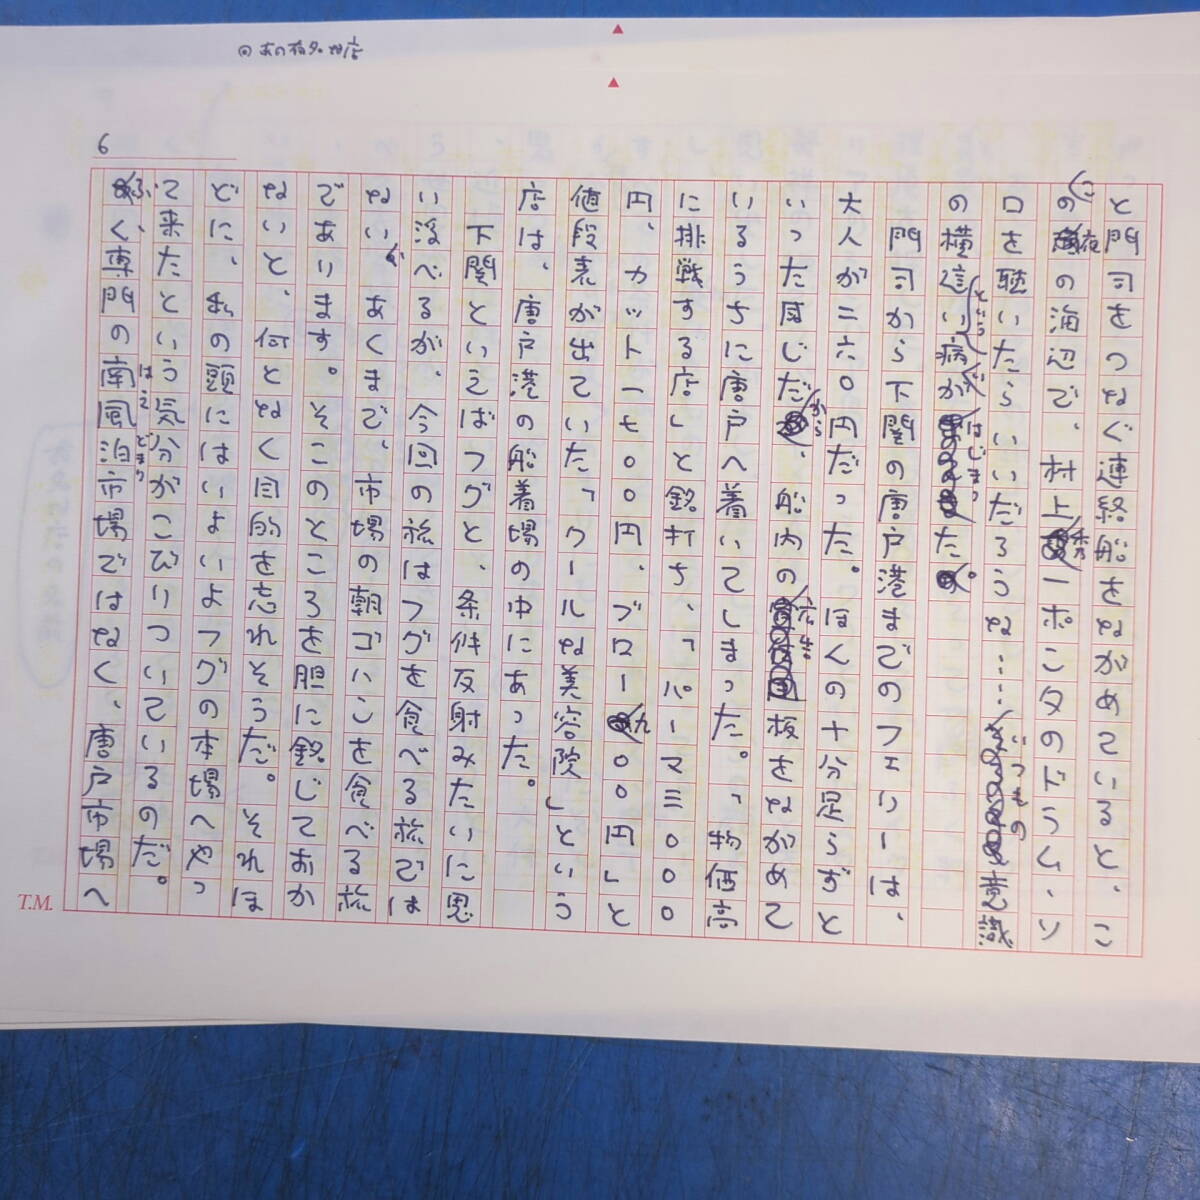 6
と門司をつなぐ連絡船をながめていると、こ
の夜の海辺で、村上秀一ポンタのドラム・ソ
ロを聴いたらいいだろうな……いつもの意識
の横這い病がはじまった。
門司から下関の唐戸港までのフェリーは、
大人が二六〇円だった。ほんの十分足らずと
いった感じだから、船内の広告板をながめて
いるうちに唐戸へ着いてしまった。「物価高
に挑戦する店」と銘打ち、「パーマ三〇〇〇
円、カット一七〇〇円、ブロー九〇〇円」と
値段表が出ていた「クールな美容院」という
店は、唐戸港の船着場の中にあった。
下関といえばフグと、条件反射みたいに思
い浮べるが、今回の旅はフグを食べる旅では
ないあくまで、市場の朝ゴハンを食べる旅
であります。そこのところを胆に銘じておか
ないと、何となく目的を忘れそうだ。それほ
どに、私の頭にはいよいよフグの本場へやっ
て来たという気分がこびりついているのだ。
ふく専門の南風泊市場ではなく、唐戸市場へ
はえどまり
T.M.